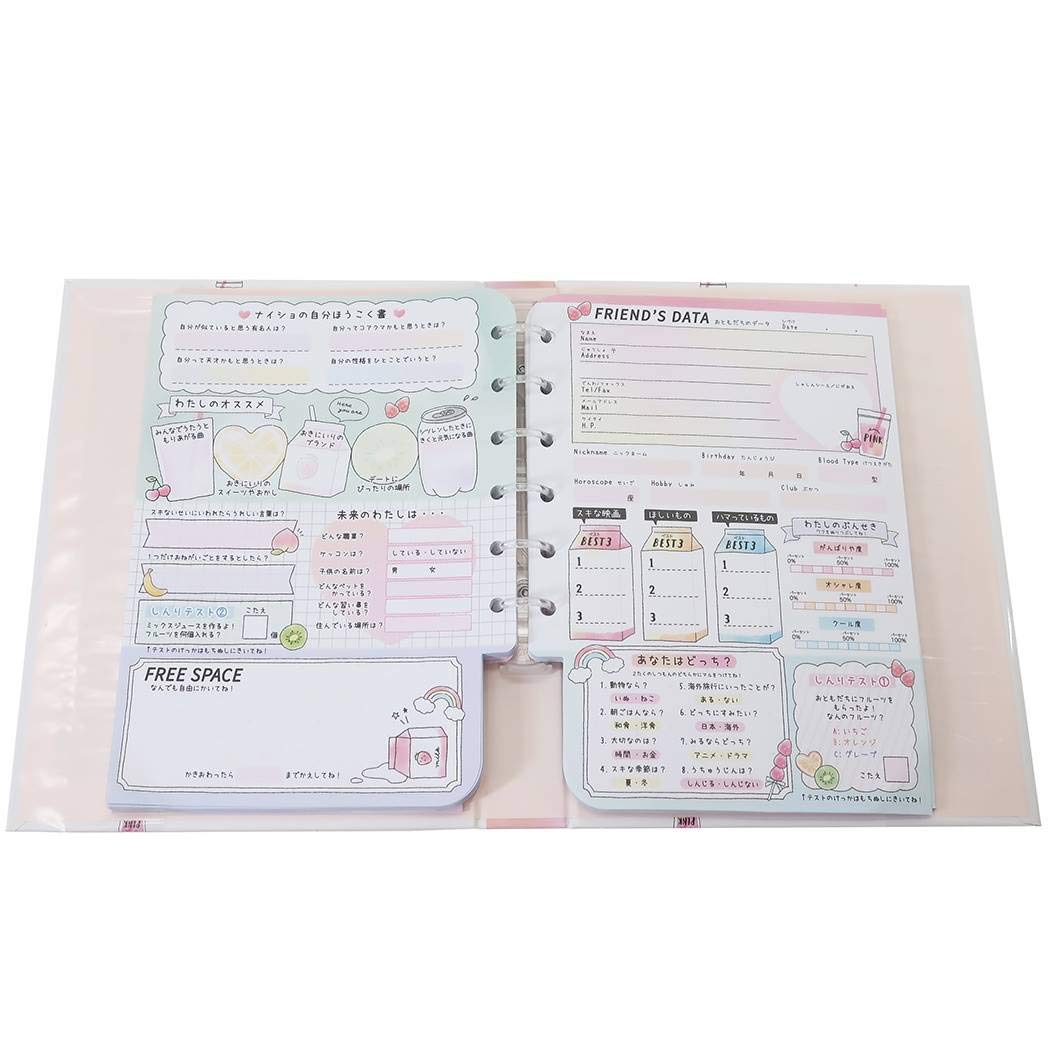 ナイショの自分ほうこく書
自分が似ていると思う有名人は?
自分ってコアクマかもと思うときは?
自分って天才かもと思うときは?
自分の性格をひとことでいうと?
わたしのオススメ
Here you are
みんなでうたうと
もりあがる曲
おきにいりの
スイーツやおかし
おきにいりの
ブランド
デートに
ぴったりの場所
シツレンしたときに
きくと元気になる曲
スキないせいにいわれたらうれしい言葉は?
1つだけおねがいごとをするとしたら?
しんりテスト②
こたえ
ミックスジュースを作るよ!
フルーツを何個入れる?
個
↑テストのけっかはもちぬしにきいてね!
未来のわたしは・・・
どんな職業?
ケッコンは?
している・していない
子供の名前は?
男 女
どんなペットを
かっている?
どんな習い事を
している?
住んでいる場所は?
FREE SPACE
なんでも自由にかいてね!
milk
かきおわったら までかえしてね!
FRIEND'S DATA おともだちのデータ
Date
なまえ
Name
じゅうしょ 〒
Address
でんわ/ファックス
Tel/Fax
メールアドレス
Mail
ケイタイ
H.P.
PINK
Nickname ニックネーム
Birthday たんじょうび
年 月 日
Blood Type けつえきがた
型
Horoscope せいざ
座
Hobby しゅみ
Club ぶかつ
スキな映画
ベスト
BEST3
1
2
3
ほしいもの
ベスト
BEST3
1
2
3
ハマっているもの
ベスト
BEST3
1
2
3
わたしのぶんせき
がんばりや度
パーセント
0% 50% 100%
オシャレ度
パーセント
0% 50% 100%
クール度
パーセント
0% 50% 100%
あなたはどっち?
2たくのしつもんのどちらかにマルをつけてね!
1. 動物なら?
いぬ・ねこ
2. 朝ごはんなら?
和食・洋食
3. 大切なのは?
時間・お金
4. スキな季節は?
夏・冬
5. 海外旅行にいったことが?
ある・ない
6. どっちにすみたい?
日本・海外
7. みるならどっち?
アニメ・ドラマ
8. うちゅうじんは?
しんじる・しんじない
しんりテスト①
おともだちにフルーツを
もらったよ!
なんのフルーツ?
A: いちご
B: オレンジ
C: グレープ
こたえ
↑テストのけっかはもちぬしにきいてね!
PINK
PINK